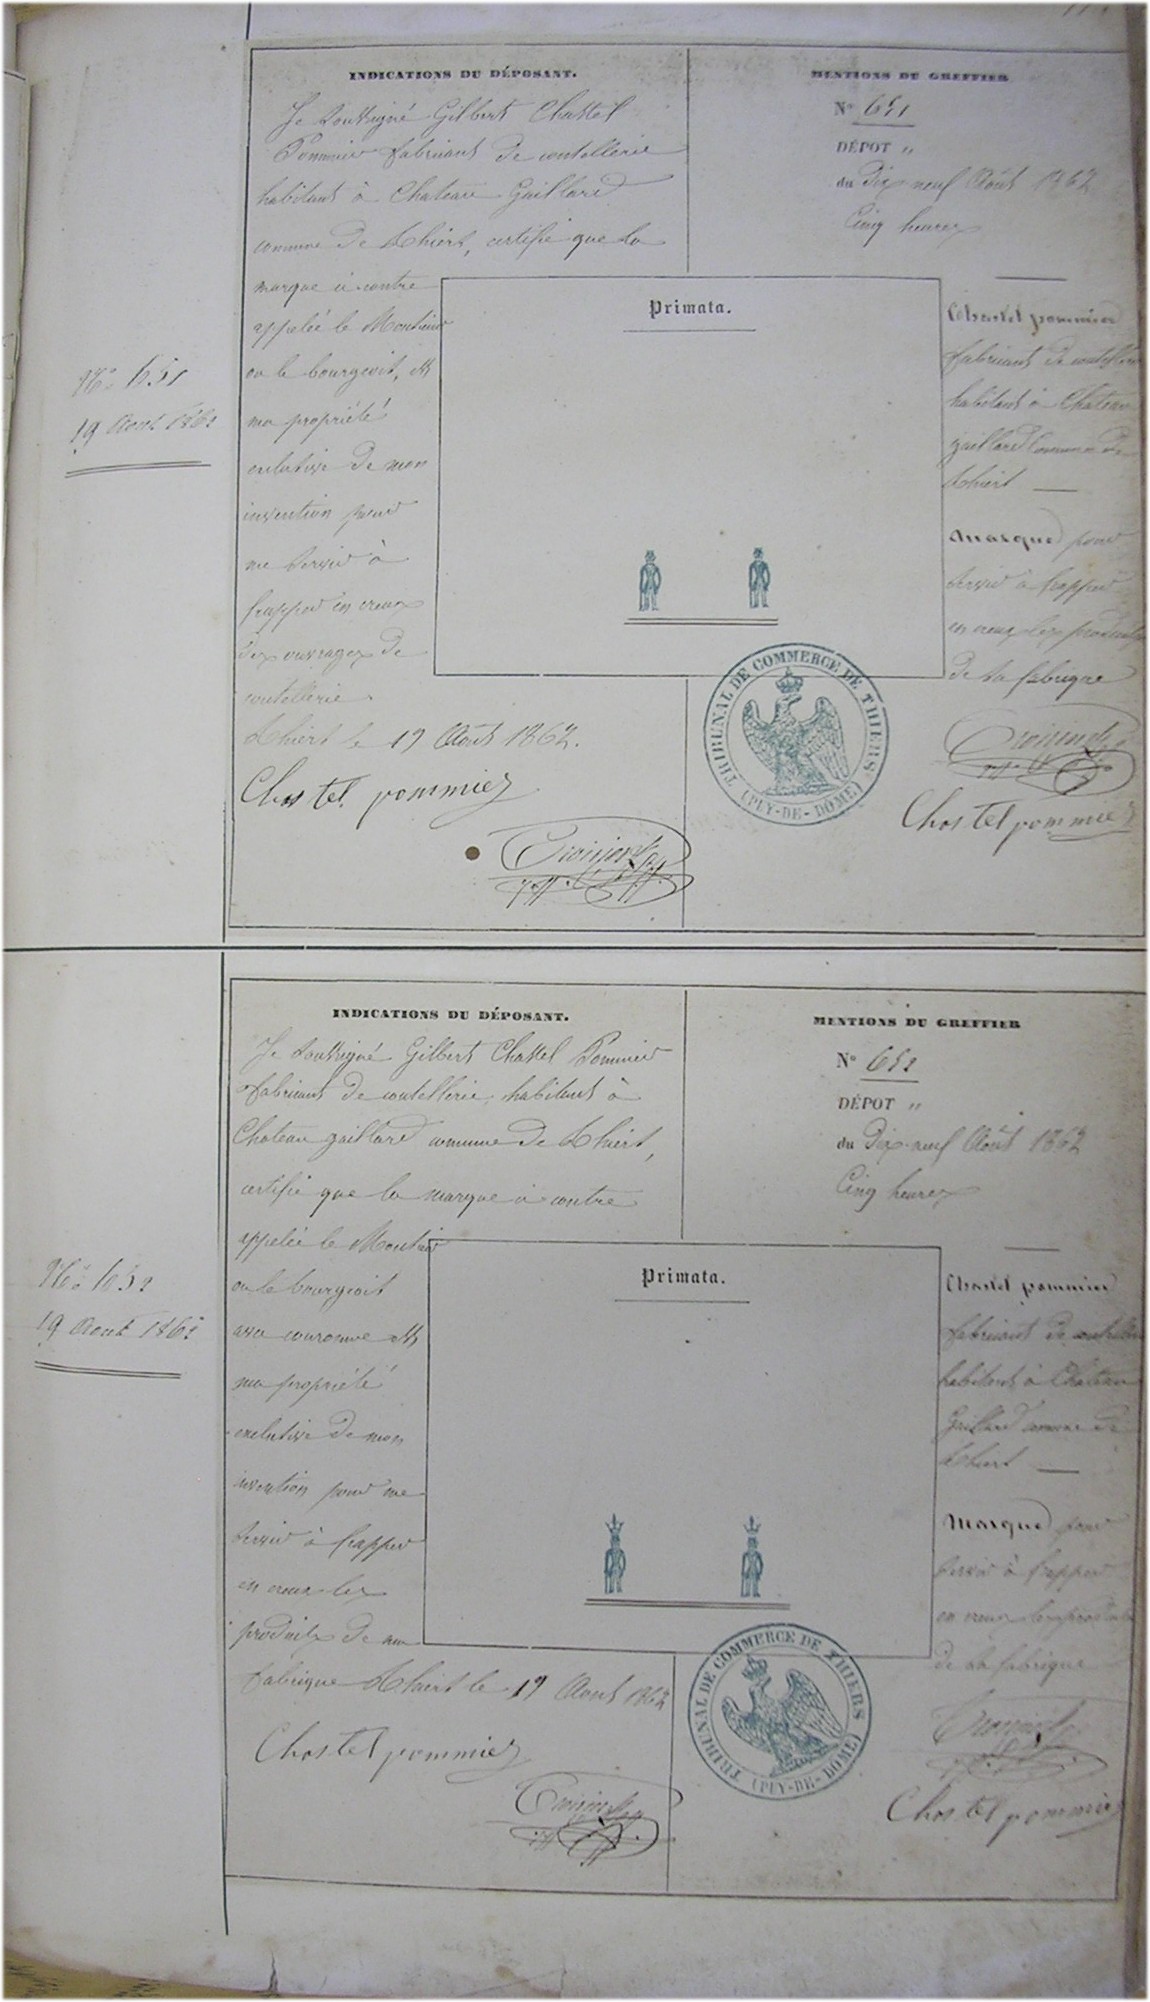 INDICATIONS DU DÉPOSANT.
Je soussigné Gilbert Chastel
Pommier fabricant de coutellerie
habitant à Chateau Gaillard
commune de Thiers, certifie que la
marque ci contre
appelée le Monsieur
ou le bourgeois, est
ma propriété
exclusive de mon
invention pour
me servir à
frapper en creux
des ouvrages de
coutellerie
Thiers le 19 Août 1862.
Chastel pommier
MENTIONS DU GREFFIER
N° 651
DÉPOT „
du Dix neuf Août 1862
Cinq heures
Primata.
Chastel pommier
fabricant de coutellerie
habitant à Chateau
gaillard Commune de
Thiers —
Marque pour
servir à frapper
en creux les produits
de sa fabrique
Chastel pommier
TRIBUNAL DE COMMERCE DE THIERS
(PUY-DE-DÔME)
N° 651
19 Aout 1862
INDICATIONS DU DÉPOSANT.
Je soussigné Gilbert Chastel Pommier
fabricant de coutellerie, habitant à
Chateau gaillard commune de Thiers,
certifie que la marque ci contre
appelée le Monsieur
ou le bourgeois
avec couronne est
ma propriété
exclusive de mon
invention pour me
servir à frapper
en creux les
produits de ma
fabrique Thiers le 19 Aout 1862
Chastel pommier
MENTIONS DU GREFFIER
N° 652
DÉPOT „
du Dix-neuf Août 1862
Cinq heures
Primata.
Chastel pommier
fabricant de coutellerie
habitant à Château
Gaillard commune de
Thiers —
Marque pour
servir à frapper
en creux les produits
de sa fabrique
Chastel pommier
TRIBUNAL DE COMMERCE DE THIERS
(PUY-DE-DÔME)
N° 652
19 Aout 1862